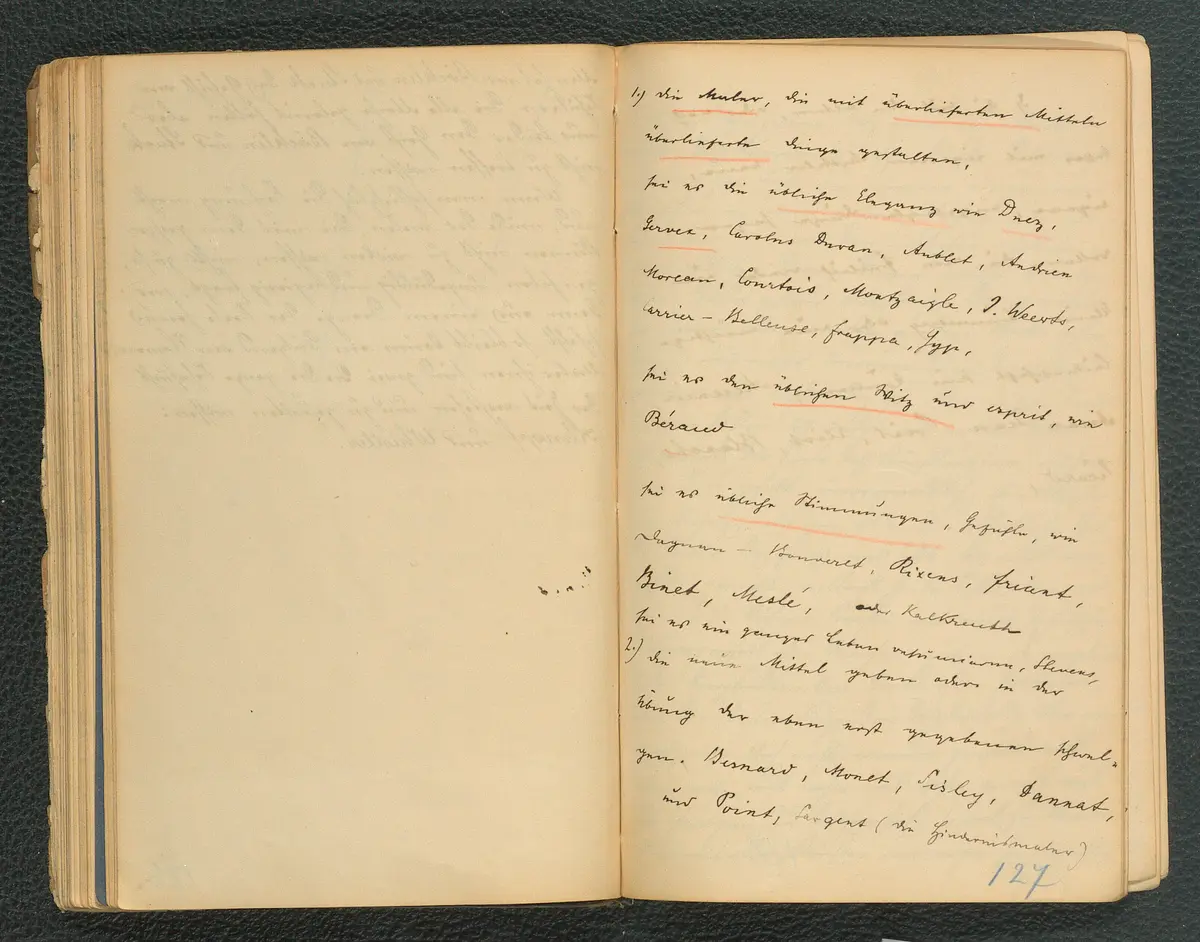 1.) die Maler, die mit überlieferten Mitteln
überlieferte Dinge gestalten,
sei es die übliche Eleganz wie Duez,
Gervex, Carolus Duran, Aublet, Andrien
Moreau, Courtois, Montzaigle, J. Weerts,
Carrier-Belleuse, Frappa, Gyp,
sei es den üblichen Witz und esprit, wie
Béraud
sei es übliche Stimmungen, Gefühle, wie
Dagnan-Bouveret, Rixens, Friant,
Binet, Meslé, oder Kalkreuth
sei es ein ganzes Leben resümieren, Stevens,
2.) die neue Mittel geben oder in der
Übung der eben erst gegebenen schwel-
gen. Besnard, Monet, Sisley, Dannat,
und Point, Sargent (die Hindernismaler)
127